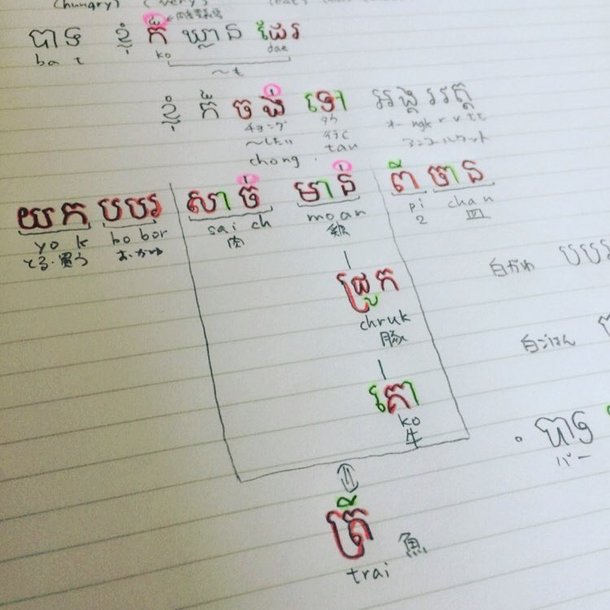 (hungry) (very)
បាទ ខ្ញុំ ក៏ ឃ្លាន ដែរ
ba t ko dae
~も
ខ្ញុំ ក៏ ចង់ ទៅ អង្គរវត្ត
~したい 行く
chong tau
យក បបរ សាច់ មាន់ ពី ចាន
yo k bo bor sai ch moan pi chan
とる・買う おかゆ 肉 鶏 2 皿
ជ្រូក
chruk
豚
គោ
ko
牛
ត្រី 魚
trai
白がゆ បប
បាទ
バー